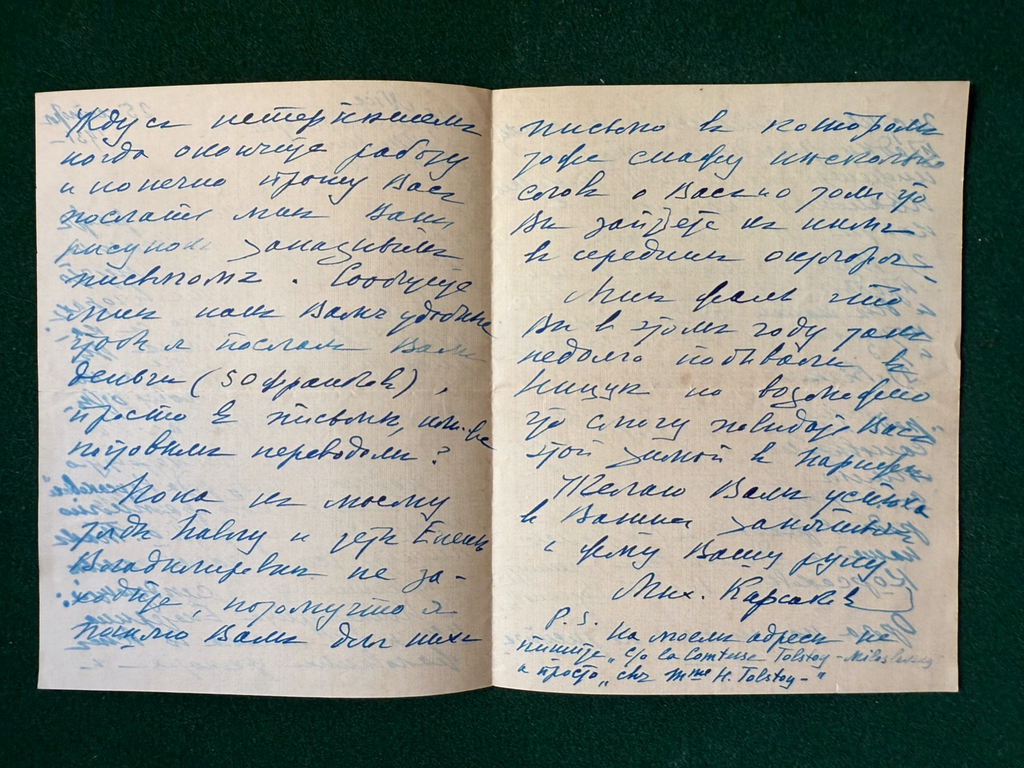 Жду съ нетерпѣніемъ
когда окончите работу
и конечно прошу Васъ
послать мнѣ Вашъ
рисунокъ заказнымъ
письмомъ. Сообщите
мнѣ какъ Вамъ удобнѣе
чтобъ я послалъ Вамъ
деньги (50 франковъ),
просто въ письмѣ, или же
почтовымъ переводомъ?
Пока къ моему
дядѣ Павлу и тетѣ Еленѣ
Владимировнѣ не за-
ходите, потому что я
пошлю Вамъ для нихъ
письмо въ которомъ
тоже скажу нѣсколько
словъ о Васъ и о томъ что
Вы зайдете къ нимъ
въ серединѣ
Мнѣ жаль что
Вы въ этомъ году такъ
недолго побывали въ
Ниццѣ но возможно
что смогу повидать Васъ
этой зимой въ Парижѣ
Желаю Вамъ успѣха
въ Вашихъ занятіяхъ
и жму Вашу руку
Мих. Карсаковъ
P.S. На моемъ адресѣ не
пишите „c/o la Comtesse Tolstoy-Miloslavsky"
а просто „chez Mme H. Tolstoy-"